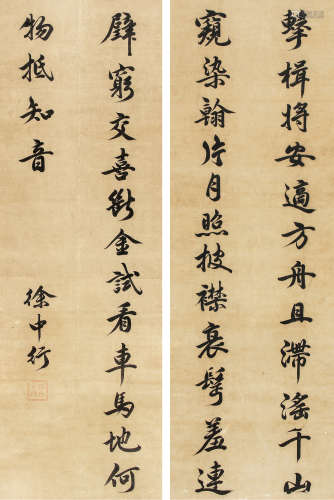 擊楫将安適方舟且滯滛千山
窺染翰片月照披襟衰髩羞連
璧窮交喜斷金試看車馬地何
物抵知音
徐中行